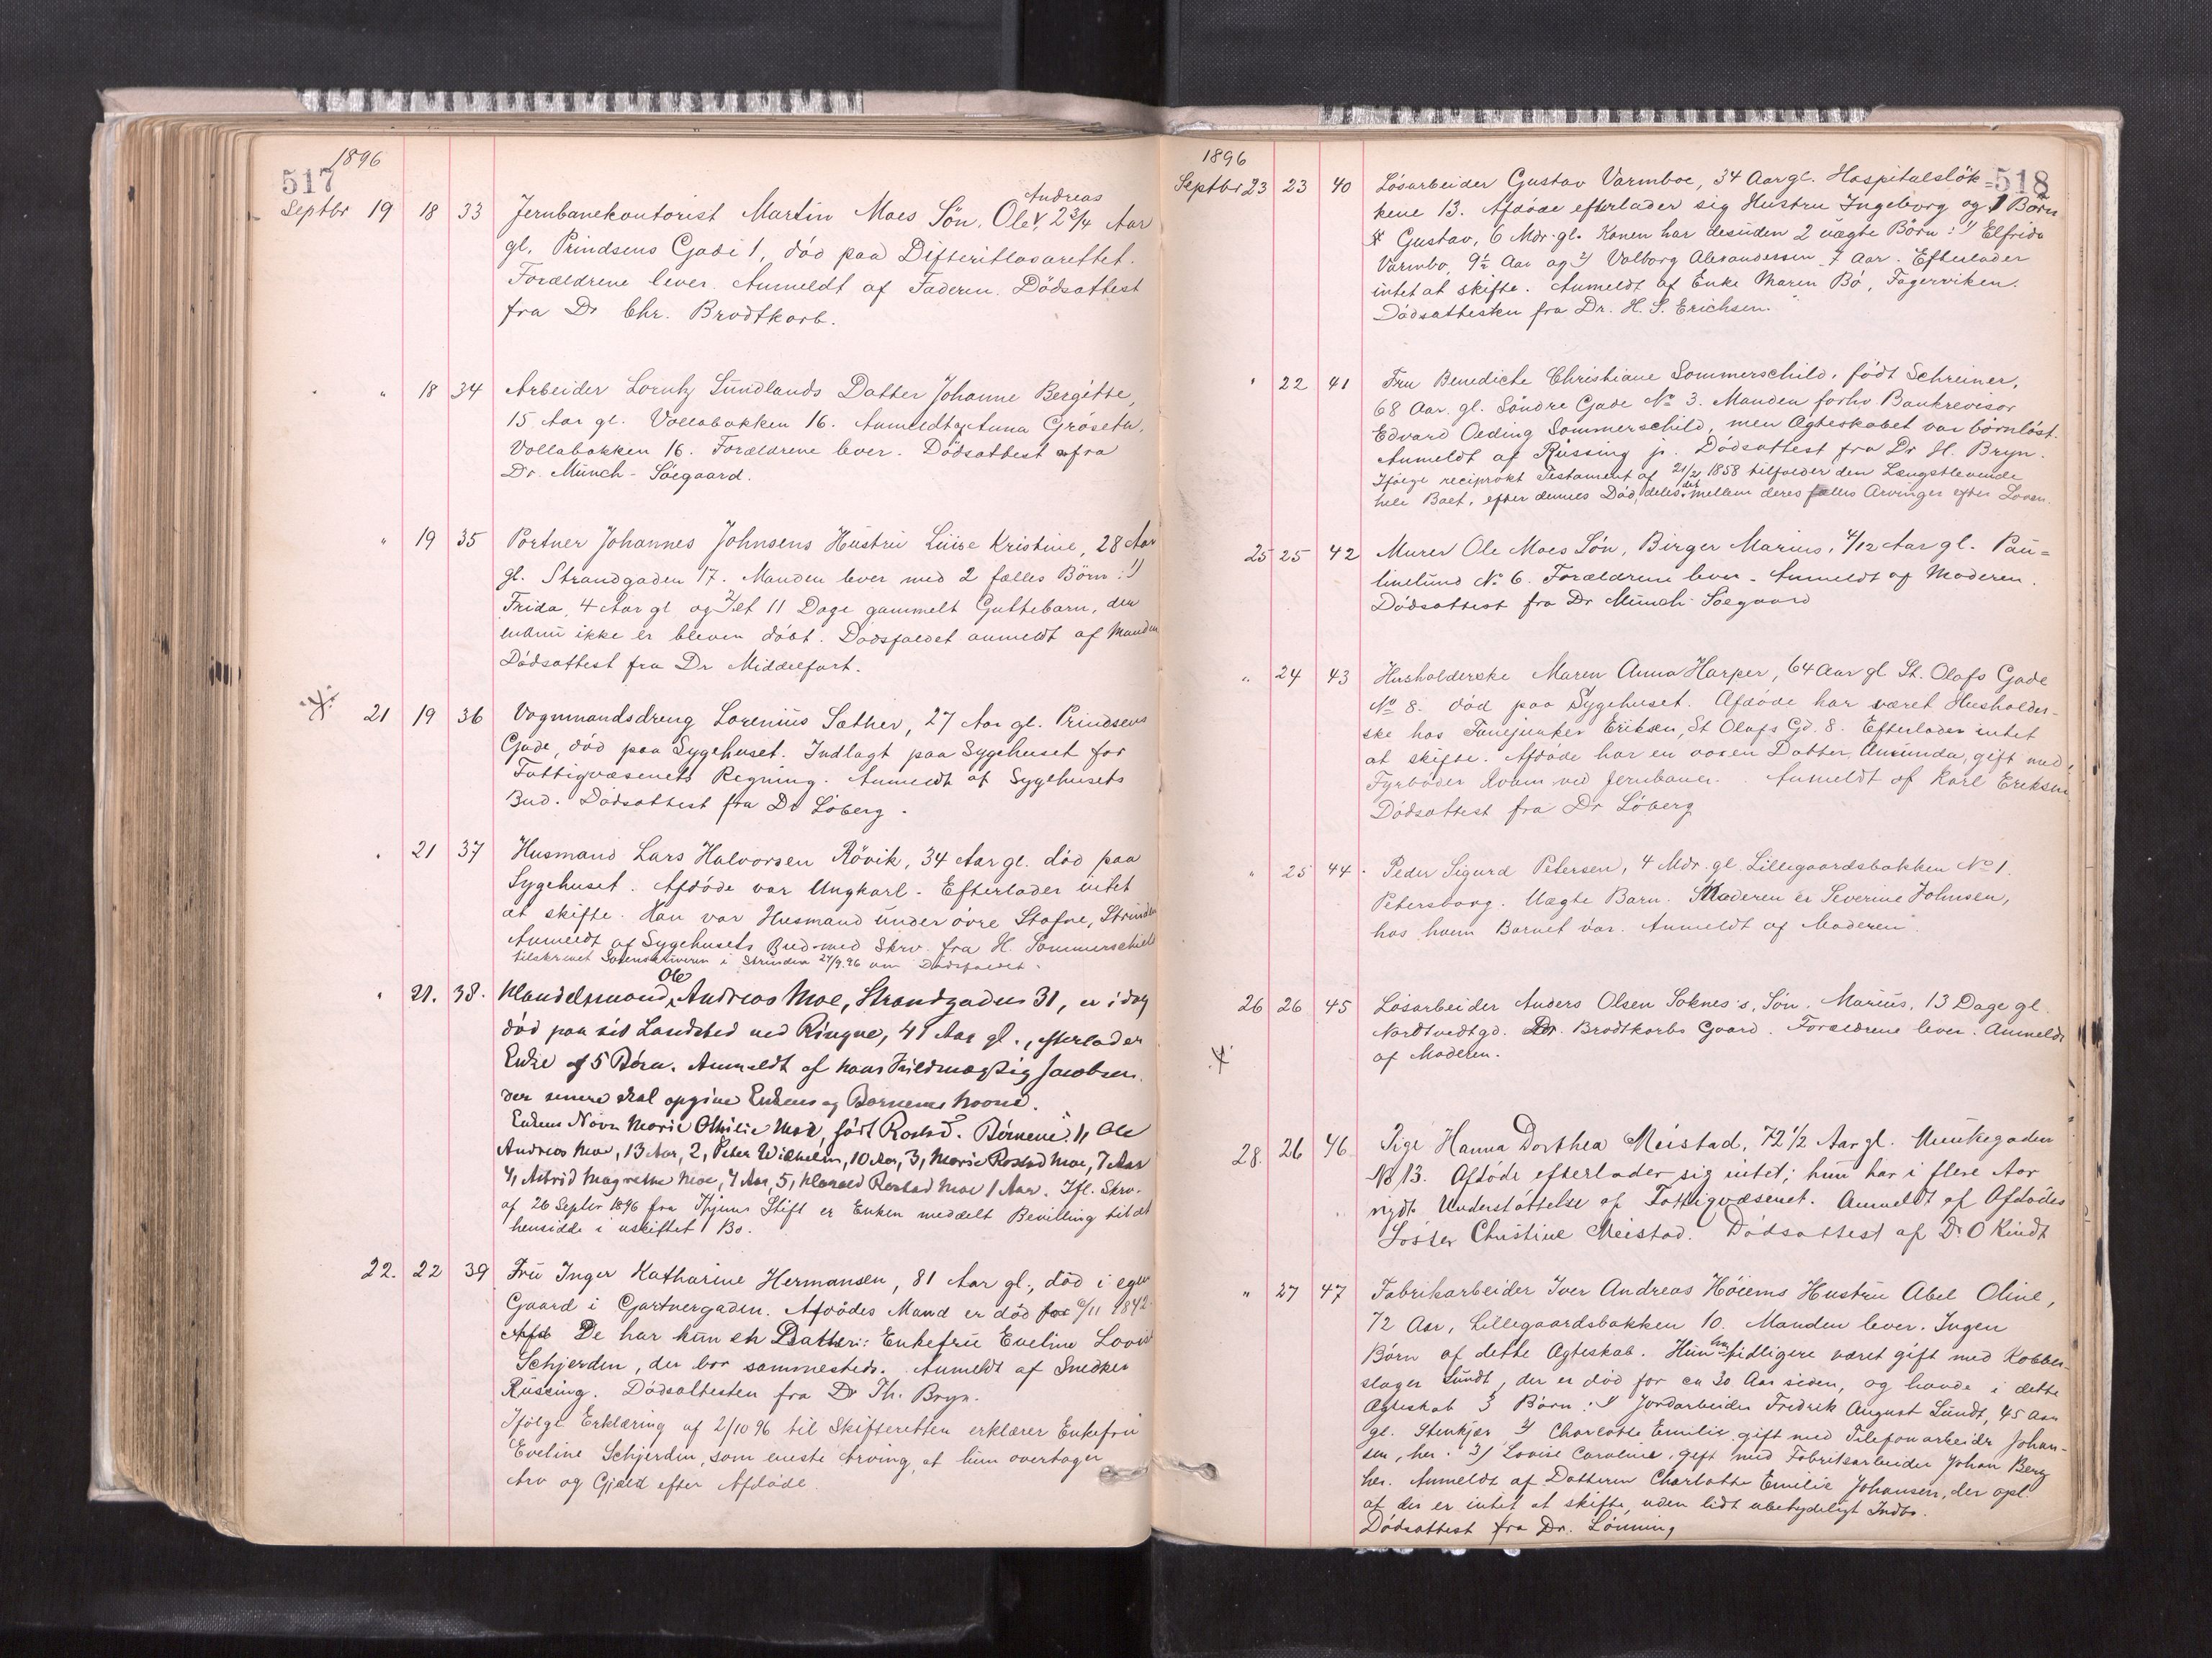 1896
517
Septbr 19 18 33 Jernbanekontorist Martin Moes Sön, Ole Andreas, 2 3/4 Aar
gl. Prindsens Gade 1, död paa Difteritlasarettet.
Forældrene lever. Anmeldt af Faderen. Dödsattest
fra Dr Chr. Brodtkorb.
" 18 34 Arbeider Lorntz Sundlands Datter Johanne Bergitte,
15 Aar gl. Vollabakken 16. Anmeldt af Anna Gröseta,
Vollabakken 16. Forældrene lever. Dödsattest fra
Dr. Münch-Söegaard.
" 19 35 Portner Johannes Johnsens Hustru Luise Kristine, 28 Aar
gl. Strandgaden 17. Manden lever med 2 fælles Börn: 1)
Frida, 4 Aar gl og 2) et 11 Dage gammelt Guttebarn, der
endnu ikke er bleven döbt. Dödsfaldet anmeldt af Manden
Dödsattest fra Dr Middelfart.
21 19 36 Vognmandsdreng Lorenius Sæther, 27 Aar gl. Prindsens
Gade, död paa Sygehuset. Indlagt paa Sygehuset for
Fattigvæsenets Regning. Anmeldt af Sygehusets
Bud. Dödsattest fra Dr Löberg.
" 21 37 Husmand Lars Halvorsen Rövik, 34 Aar gl. död paa
Sygehuset. Afdöde var Ungkarl. Efterlader intet
at skifte. Han var Husmand under övre Stafne, Strinden
Anmeldt af Sygehusets Bud med Skrv. fra H. Sommerschield
tilskrevet Sorenskriveren i Strinden 24/9.96 om Dödsfaldet.
" 21. 38. Handelsmand Ole Andreas Moe, Strandgaden 31, er idag
död paa sit Landsted ved Ringve, 41 Aar gl., efterlader
Enke og 5 Börn. Anmeldt af hans Jacobsen.
der senere skal opgive Enkens og Börnenes Navne.
Enkens Navn Marie Othilie Moe, födt Rostad. Börnene: 1, Ole
Andreas Moe, 13 Aar, 2, Peter Wilhelm, 10 Aar, 3, Marie Rostad Moe, 7 Aar
4, Astrid Magrethe Moe, 4 Aar, 5, Harald Rostad Moe 1 Aar. Ifl. Skrv.
af 26 Septbr 1896 fra Thjems Stift er Enken meddelt Bevilling til at
hensidde i uskiftet Bo.
22. 22 39 Fru Inger Katharine Hermansen, 81 Aar gl., död i egen
Gaard i Gartnergaden. Afdödes Mand er död for 6/11 1842.
Afd De har kun en Datter: Enkefru Eveline Lovise
Schjerden, der bor sammesteds. Anmeldt af Snedker
Rüssing. Dödsattesten fra Dr Th. Bryn.
Ifölge Erklæring af 2/10 96 til Skifteretten erklærer Enkefru
Eveline Schjerden, som eneste Arving, at hun overtager
Arv og Gjæld efter Afdöde.
1896
518
Septbr 23 23 40 Lösarbeider Gustav Varmboe, 34 Aar gl. Hospitalslök-
kene 13. Afdöde efterlader sig Hustru Ingeborg og 1 Barn
Gustav, 6 Mdr. gl. Konen har desuden 2 uægte Börn: 1) Elfrida
Varmbo, 9½ Aar og 2) Valborg Alexandersen 7 Aar. Efterlader
intet at skifte. Anmeldt af Enke Maren Bö, Fagerviken.
Dödsattesten fra Dr. H. S. Erichsen.
" 22 41 Fru Benedicte Christiane Sommerschild, födt Schreiner,
68 Aar. gl. Söndre Gade No 3. Manden forhv. Bankrevisor
Edvard Oeding Sommerschild, men Ægteskabet var börnlöst.
Anmeldt af Rüssing jr. Dödsattest fra Dr H. Bryn.
Ifölge reciprokt Testament af 21/2 1858 tilfalder den Længstlevende
hele Boet, efter dennes Död, deles det mellem deres fælles Arvinger efter Loven.
25 25 42 Murer Ole Moes Sön, Birger Marius, 4/12 Aar gl. Pau-
linelund No 6. Forældrene lever. Anmeldt af Moderen.
Dödsattest fra Dr Münch-Söegaard
" 24 43 Husholderske Maren Anna Harper, 64 Aar gl St. Olafs Gade
No 8. död paa Sygehuset. Afdöde har været Husholder-
ske hos Eriksen, St Olafs Gd. 8. Efterlader intet
at skifte. Afdöde har en voxen Datter, Amunda, gift med
Fyrböder ved Jernbanen. Anmeldt af Karl Eriksen
Dödsattest fra Dr Löberg
" 25 44. Peder Sigurd Petersen, 4 Mdr. gl Lillegaardsbakken No 1.
Petersborg. Uægte Barn. Moderen er Severine Johnsen,
hos hvem Barnet var. Anmeldt af Moderen.
26 26 45 Lösarbeider Anders Olsen Soknes's, Sön. Marius, 13 Dage gl.
Nordtvedtgd. Dr. Brodtkorbs Gaard. Forældrene lever. Anmeldt
af Moderen.
28. 26 46 Pige Hanna Dorthea Meistad, 72 1/2 Aar gl. Munkegaden
No 13. Afdöde efterlader sig intet; hun har i flere Aar
nydt Understöttelse af Fattigvæsenet. Anmeldt af Afdödes
Söster Christine Meistad. Dödsattest af Dr O Kindt
" 27 47 Fabrikarbeider Iver Andreas Höiems Hustru Abel Oline,
72 Aar, Lillegaardsbakken 10. Manden lever. Ingen
Börn af dette Ægteskab. Hun har tidligere været gift med Kobber-
slager Lundt, der er död for ca 30 Aar siden, og havde i dette
Ægteskab 3 Börn: 1) Jordarbeider Fredrik August Lundt, 45 Aar
gl. Stenkjær 2) Charlotte Emilie gift med Telefonarbeider Johan-
sen, her. 3) Lovise Caroline, gift med Fabrikarbeider Johan Berg
her. Anmeldt af Datteren Charlotte Emilie Johansen, der opl.
at der er intet at skifte, uden lidt ubetydeligt Indbo.
Dödsattest fra Dr. Lönning